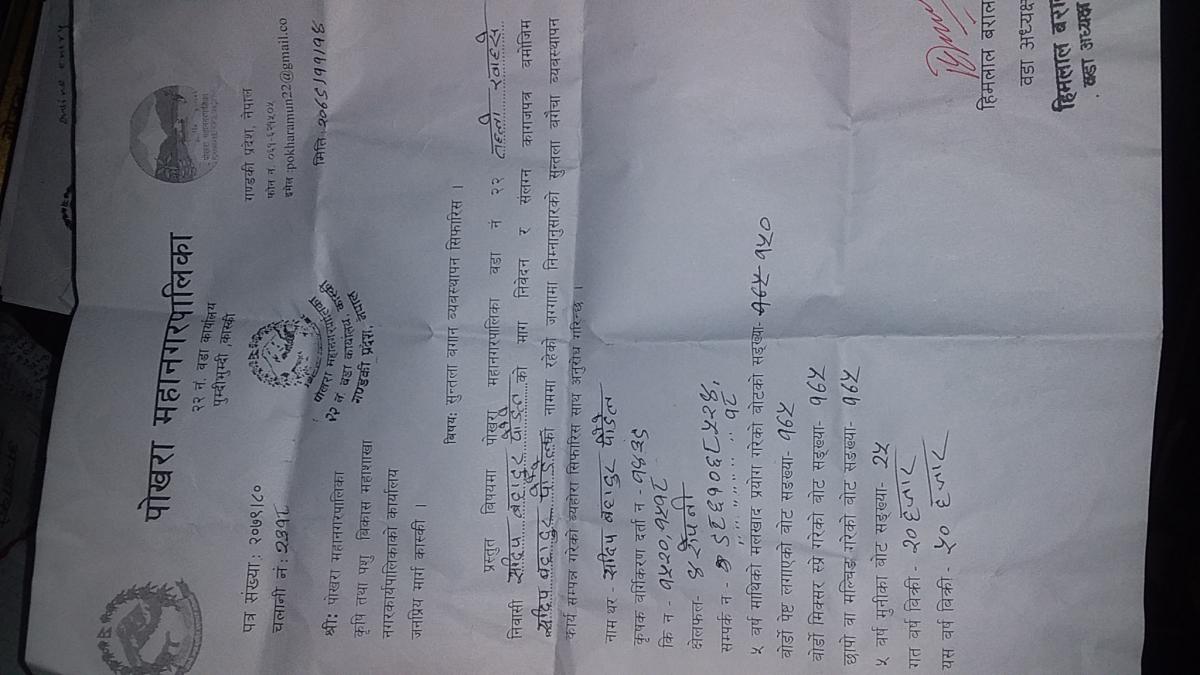 पोखरा महानगरपालिका
२२ नं. वडा कार्यालय
पुम्दीभुम्दी ,कास्की
गण्डकी प्रदेश, नेपाल
फोन नं. ०६१-६२१५०५
इमेल :pokharamun22@gmail.co
पत्र संख्या : २०७९।८०
चलानी नं:
मिति:
पोखरा महानगरपालिका
२२ नं. वडा कार्यालय, कास्की
गण्डकी प्रदेश, नेपाल
श्री: पोखरा महानगरपालिका
कृषि तथा पशु विकास महाशाखा
नगरकार्यपालिकाको कार्यालय
जनप्रिय मार्ग कास्की ।
बिषय: सुन्तला बगान ब्यवस्थापन सिफारिस ।
प्रस्तुत बिषयमा पोखरा महानगरपालिका वडा नं २२
निवासी बहादुर पौडेल को माग निवेदन र संलग्न कागजपत्र बमोजिम
बहादुर पौडेलको नाममा रहेको जग्गामा निम्नानुसारको सुन्तला बगैंचा ब्यवस्थापन
कार्य सम्पन्न गरेको ब्यहोरा सिफारिस साथ अनुरोध गरिन्छ ।
नाम थर - बहादुर पौडेल
कृषक वर्गिकरण दर्ता न -
कि न - १५२०,१५१८
क्षेत्रफल- ४ रोपनी
सम्पर्क न -
५ बर्ष माथिको मलखाद प्रयोग गरेको बोटको सङ्ख्या- १५०
बोर्डो पेष्ट लगाएको बोट सङ्ख्या- १६५
बोर्डो मिक्सर स्प्रे गरेको बोट सङ्ख्या- १६५
छापो वा मल्चिङ गरेको बोट सङ्ख्या- १६५
५ बर्ष मुनीका बोट सङ्ख्या- २५
गत बर्ष बिक्री- २० हजार
यस बर्ष बिक्री- ५० हजार
हिमलाल बराल
वडा अध्यक्ष
हिमलाल बराल
वडा अध्यक्ष